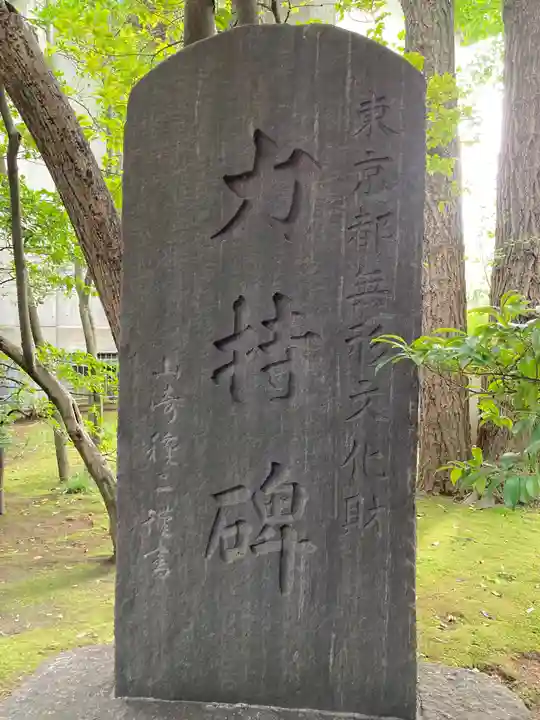 東京都無形文化財
力持碑
山崎種二謹書